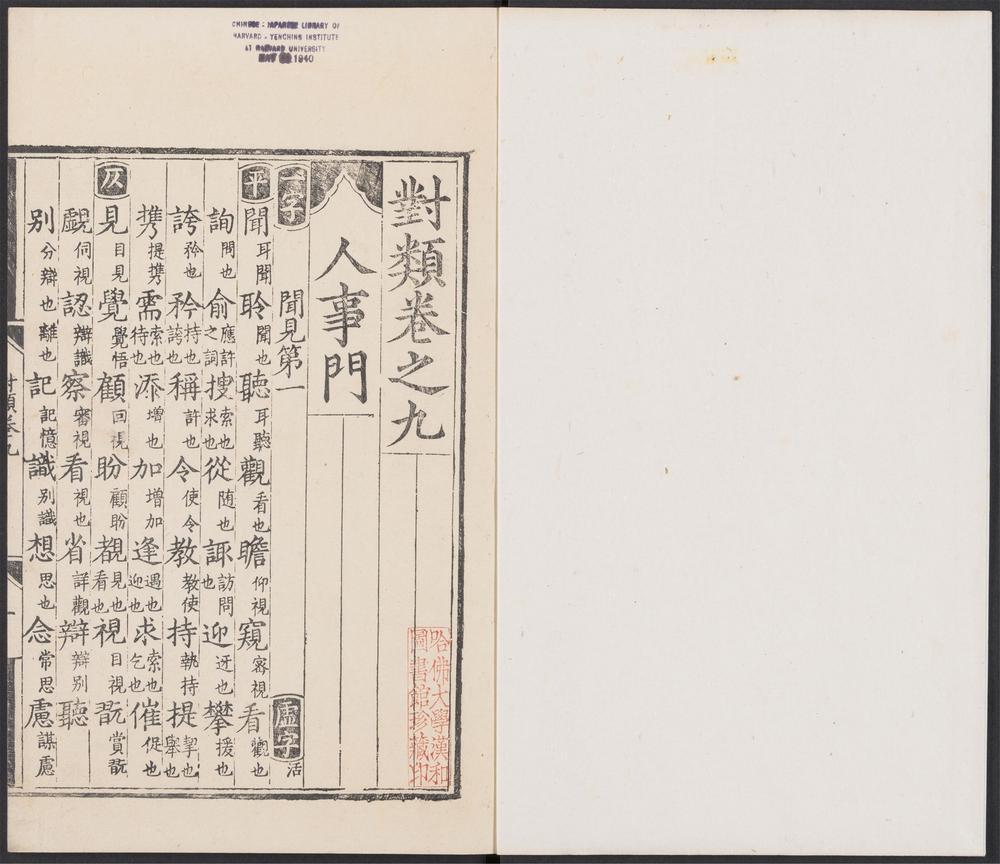 CHINESE - JAPANESE LIBRARY OF
HARVARD - YENCHING INSTITUTE
AT HARVARD UNIVERSITY
1940
對類卷之九
人事門
一字 聞見第一 虛字 活
平 聞 耳聞 聆 聞也 聽 耳聽 觀 看也 瞻 仰視 窺 密視 看 觀也
詢 問也 俞 應許之詞 搜 索也求也 從 随也 諏 訪問也 迎 迓也 攀 援也
誇 矜也 矜 持也誇也 稱 許也 令 使令 教 教使 持 執持 提 挈也舉也
携 提携 需 索也待也 添 增也 加 增加 逢 遇也迎也 求 索也乞也 催 促也
仄 見 目見 覺 覺悟 顧 回視 盼 顧盼 覩 見也看也 視 目視 翫 賞翫
覷 伺視 認 辯識 察 審視 看 視也 省 詳觀 辯 辯別 聽
别 分辯也離也 記 記憶 識 别識 想 思也 念 常思 慮 謀慮
對類卷九
哈佛大學漢和
圖書館珍藏印